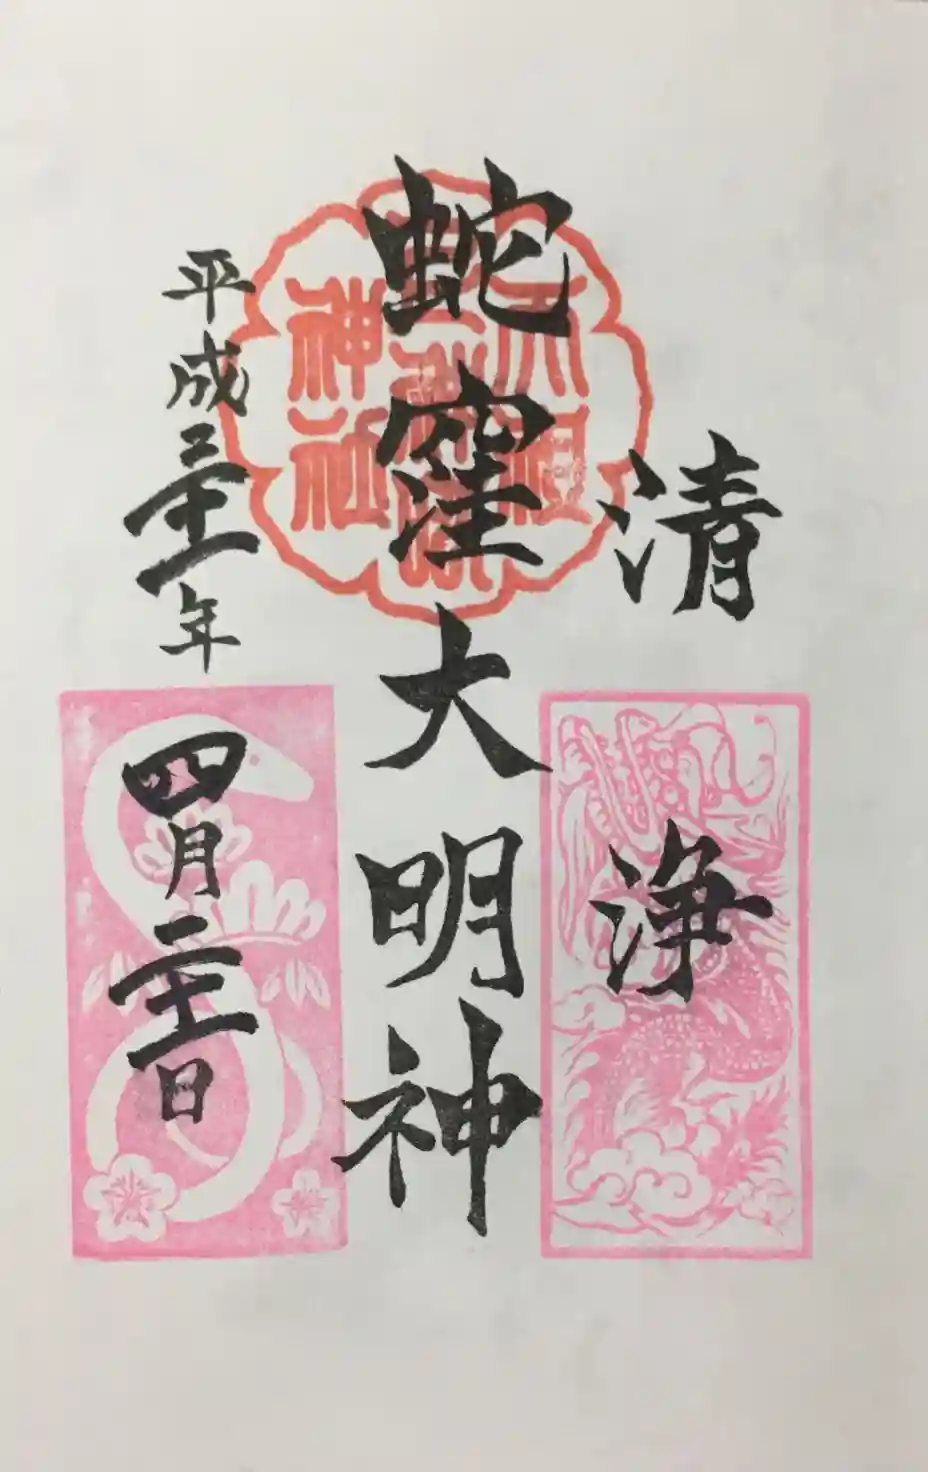 清浄
蛇窪大明神
平成三十一年四月二十一日
天祖
神社